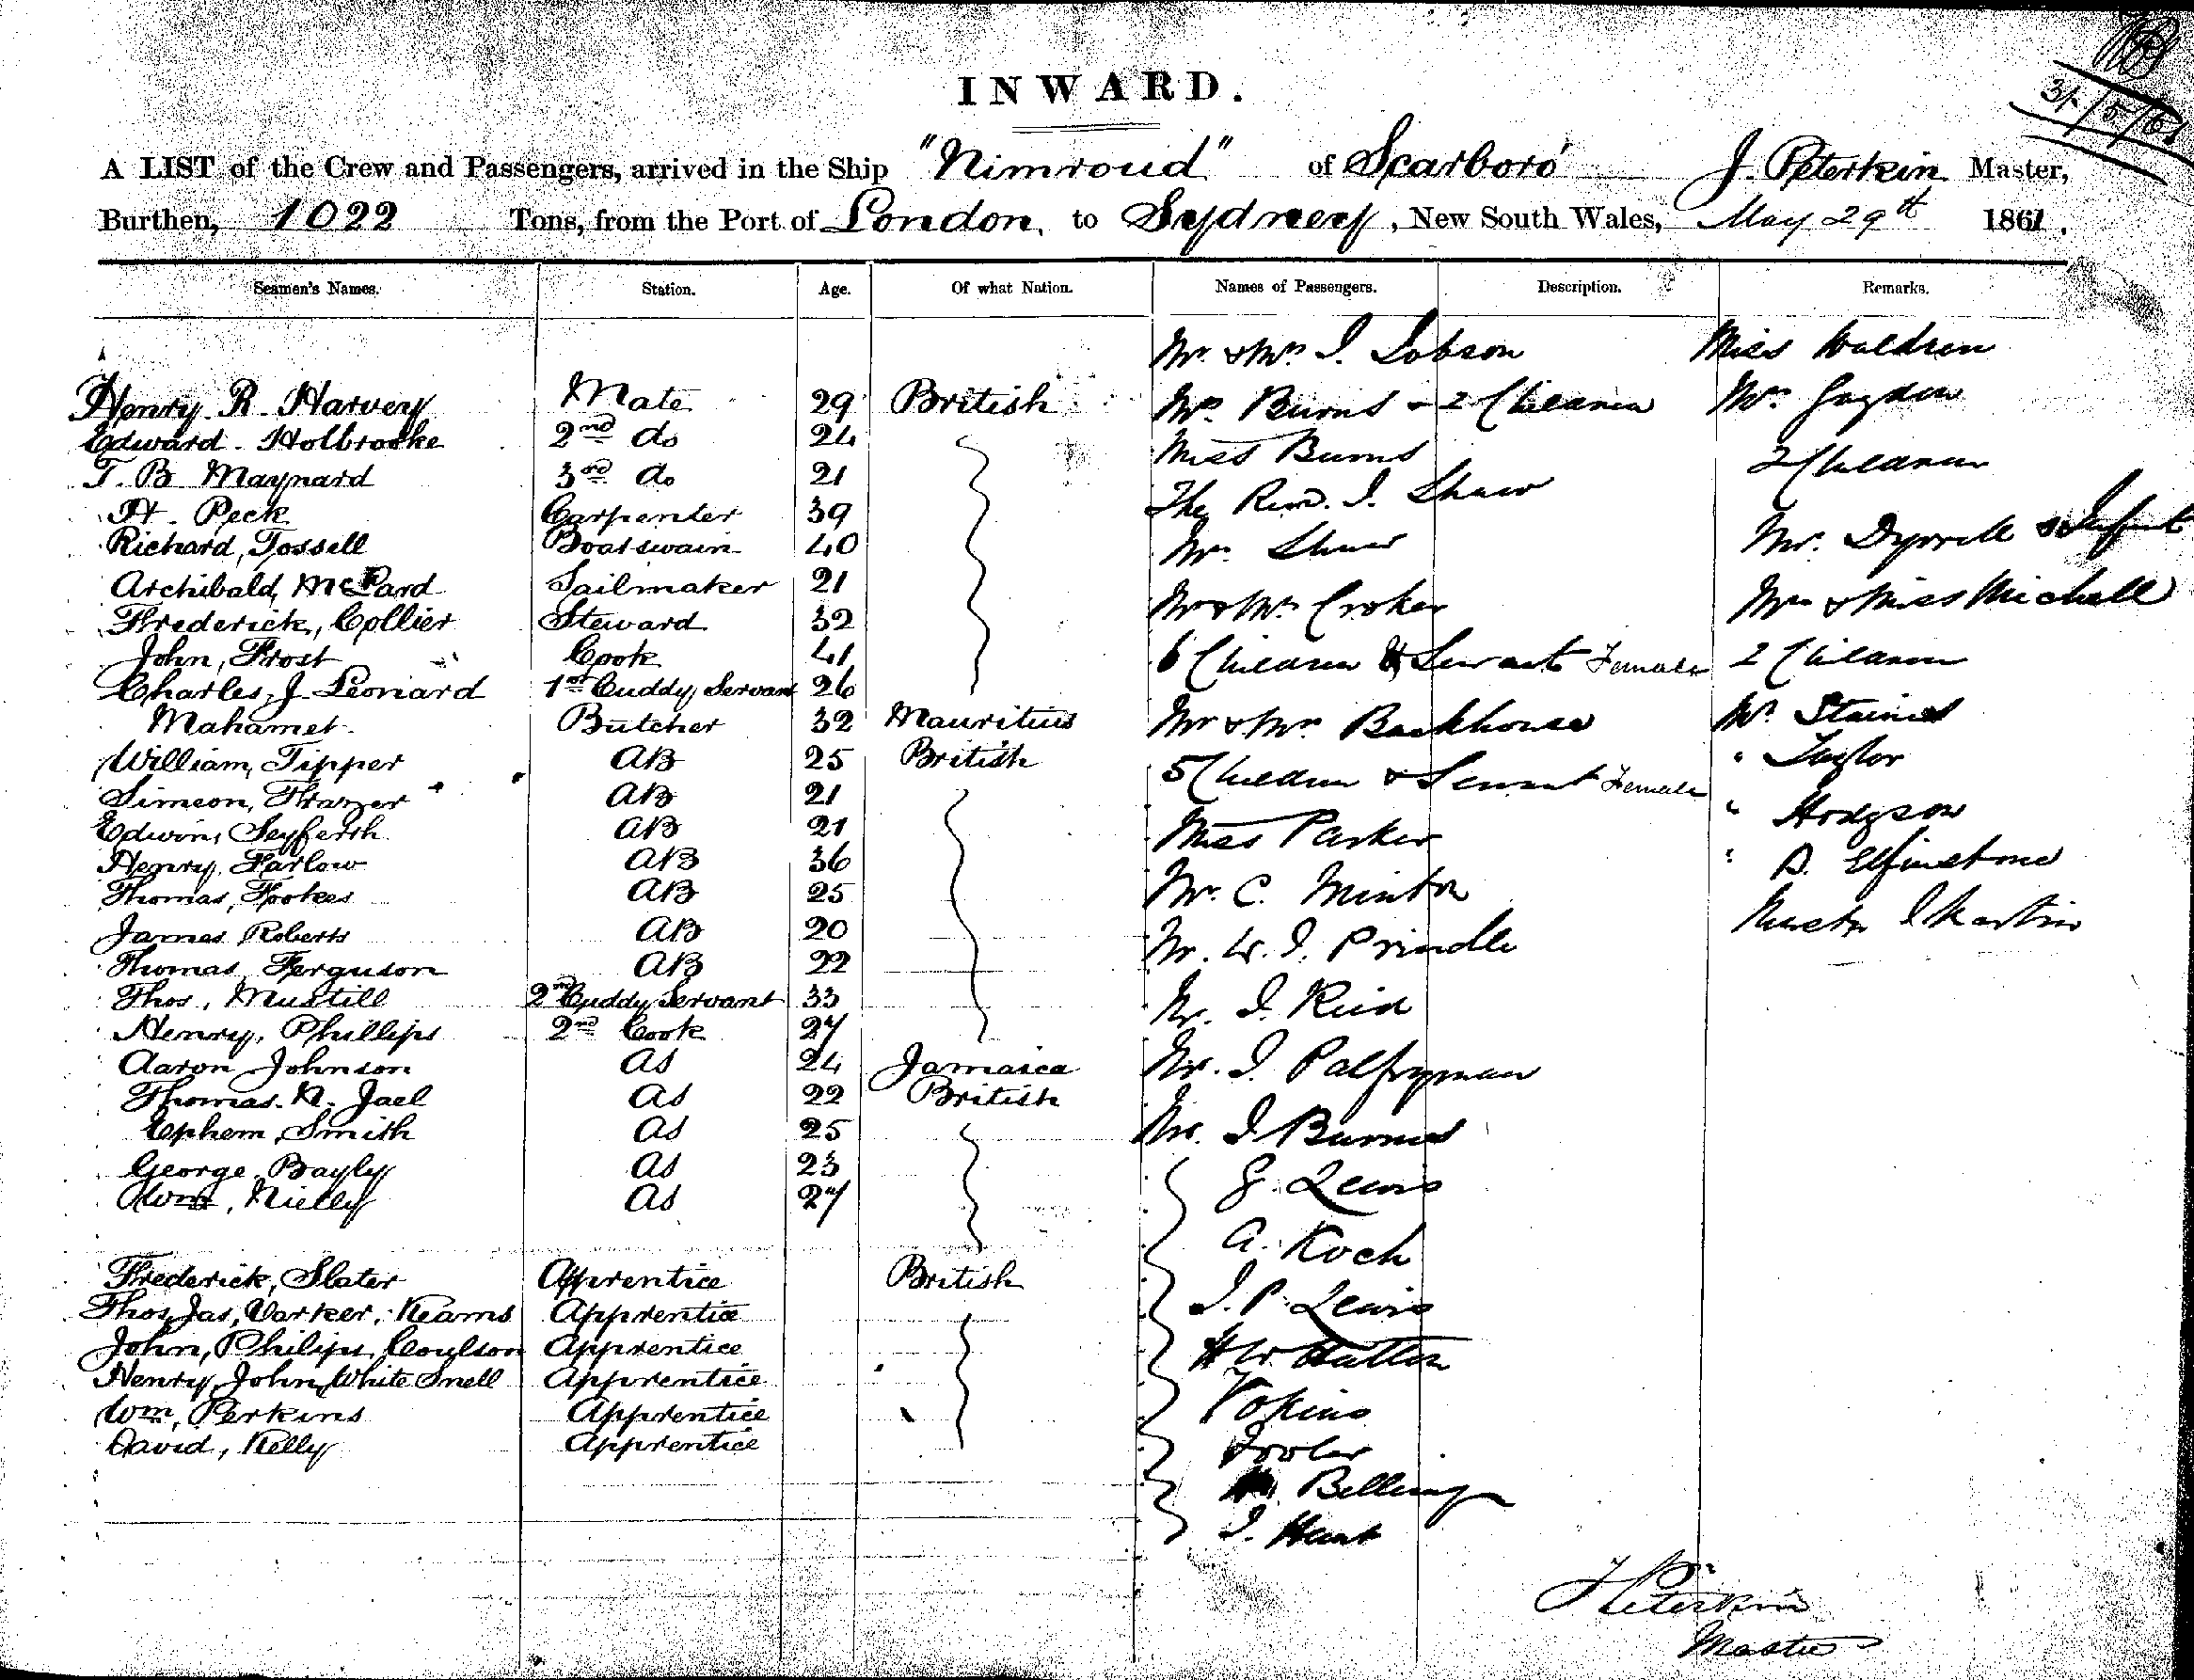 31/5/61
INWARD.
A LIST of the Crew and Passengers, arrived in the Ship "Nimroud" of Scarboro' J. Peterkin Master,
Burthen, 1022 Tons, from the Port of London, to Sydney, New South Wales, May 29th 1861.
Seamen's Names. Station. Age. Of what Nation. Names of Passengers. Description. Remarks.
Henry R. Harvey Mate 29 British
Edward Holbrooke 2nd do 24
T. B. Maynard 3rd do 21
H. Peck Carpenter 39
Richard, Tossell Boatswain 40
Archibald, Sailmaker 21
Frederick, Collier Steward 32
John, Frost Cook 41
Charles, J. Leonard 1st Cuddy, Servant 26
Mahamet Butcher 32 Mauritius
William, Tipper AB 25 British
Simeon, AB 21
Edwin, Seyferth AB 21
Henry, Farlow AB 36
Thomas, Fookes AB 25
James Roberts AB 20
Thomas Ferguson AB 22
Thos, Mustill 2nd Cuddy Servant 33
Henry, Phillips 2nd Cook 27
Aaron Johnson AS 24 Jamaica
Thomas. Jael AS 22 British
Ephem, Smith AS 25
George, Bayly AS 23
Wm, Nielly AS 27
Frederick, Slater Apprentice British
Thos, Jas, Varker, Keams Apprentice
John, Philips, Coulson Apprentice
Henry, John, White Snell Apprentice
Wm, Perkins Apprentice
David, Kelly Apprentice
Mr. & Mrs I. Dobson
Mrs Burns - 2 Children
Miss Burns
The Revd. I. Shaw
Mrs Shaw
Mr & Mrs Croker
6 Children & Servant Female
Mr & Mrs Backhouse
5 Children & Servant Female
Miss Parker
Mr. C. Minton
Mr. W. I. Prindle
Mr. I. Reid
Mr. I. Palfryman
Mr. I. Burns
G. Lewis
A. Koch
I. P. Lewis
H W. Hatton
Vokins
Billing
I. Hunt
Miss Waldron
Mrs
2 Children
Mr. & Infant
Mrs & Miss Michell
2 Children
Mr. Staines
" Taylor
" Hodgson
" Elfinstone
Martin
J Peterkin
Master